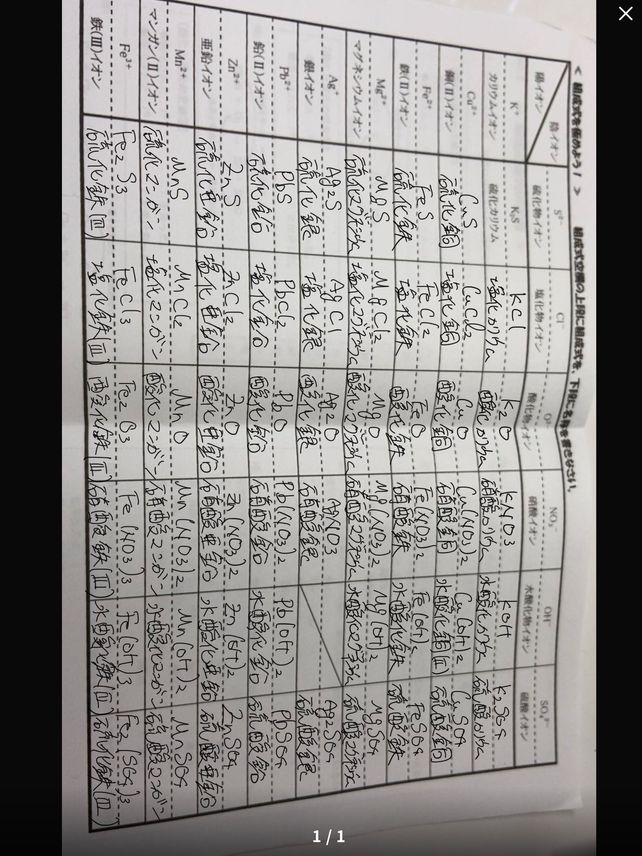 < 組成式を極めよう! >
組成式空欄の上段に組成式を、下段に名称を書きなさい。
陽イオン 陰イオン
S²⁻ 硫化物イオン
Cl⁻ 塩化物イオン
O²⁻ 酸化物イオン
NO₃⁻ 硝酸イオン
OH⁻ 水酸化物イオン
SO₄²⁻ 硫酸イオン
K⁺ K₂S KCl K₂O KNO3 KOH K2SO4
カリウムイオン 硫化カリウム 塩化カリウム 酸化カリウム 硝酸カリウム 水酸化カリウム 硫酸カリウム
Cu²⁺ CuS CuCl2 CuO Cu(NO3)2 Cu(OH)2 CuSO4
銅(II)イオン 硫化銅 塩化銅 酸化銅 硝酸銅 水酸化銅(II) 硫酸銅
Fe²⁺ FeS FeCl2 FeO Fe(NO3)2 Fe(OH)2 FeSO4
鉄(II)イオン 硫化鉄 塩化鉄 酸化鉄 硝酸鉄 水酸化鉄 硫酸鉄
Mg²⁺ MgS MgCl2 MgO Mg(NO3)2 Mg(OH)2 MgSO4
マグネシウムイオン 硫化マグネシウム 塩化マグネシウム 酸化マグネシウム 硝酸マグネシウム 水酸化マグネシウム 硫酸マグネシウム
Ag⁺ Ag2S AgCl Ag2O AgNO3 Ag2SO4
銀イオン 硫化銀 塩化銀 酸化銀 硝酸銀 硫酸銀
Pb²⁺ PbS PbCl2 PbO Pb(NO3)2 Pb(OH)2 PbSO4
鉛(II)イオン 硫化鉛 塩化鉛 酸化鉛 硝酸鉛 水酸化鉛 硫酸鉛
Zn²⁺ ZnS ZnCl2 ZnO Zn(NO3)2 Zn(OH)2 ZnSO4
亜鉛イオン 硫化亜鉛 塩化亜鉛 酸化亜鉛 硝酸亜鉛 水酸化亜鉛 硫酸亜鉛
Mn²⁺ MnS MnCl2 MnO Mn(NO3)2 Mn(OH)2 MnSO4
マンガン(II)イオン 硫化マンガン 塩化マンガン 酸化マンガン 硝酸マンガン 水酸化マンガン 硫酸マンガン
Fe³⁺ Fe2S3 FeCl3 Fe2O3 Fe(NO3)3 Fe(OH)3 Fe2(SO4)3
鉄(III)イオン 硫化鉄(III) 塩化鉄(III) 酸化鉄(III) 硝酸鉄(III) 水酸化鉄(III) 硫化鉄(III)
1 / 1